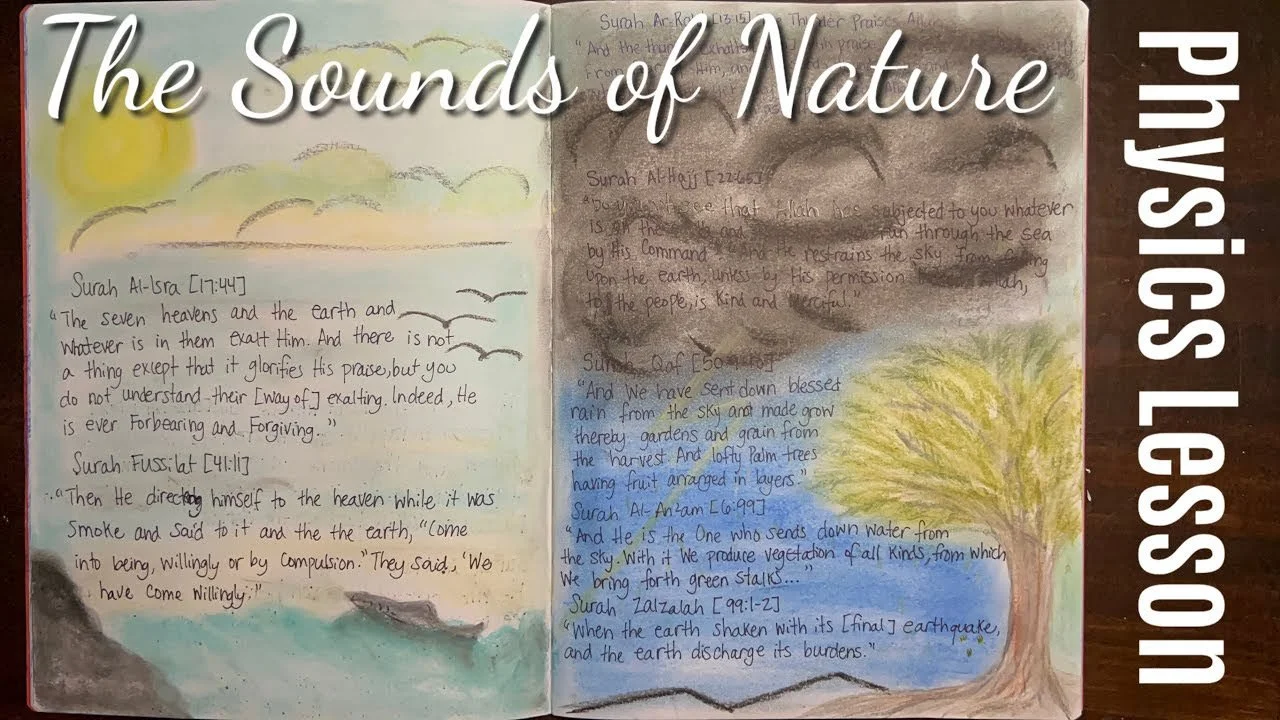 The Sounds of Nature
Physics Lesson
Surah Al-Isra [17:44]
"The seven heavens and the earth and
whatever is in them exalt Him. And there is not
a thing except that it glorifies His praise, but you
do not understand their [way of] exalting. Indeed, He
is ever Forbearing and Forgiving."
Surah Fussilat [41:11]
"Then He himself to the heaven while it was
smoke and said to it and the the earth, "Come
into being, willingly or by compulsion." They said, 'We
have come willingly."
Surah [13:15] Thunder Praises
"And the
From Him,
Surah Al-Hajj [22:65]
see that Allah has subjected to you whatever
is on the through the sea
by His Command And He restrains the sky from falling
upon the earth, unless by His permission
to the people, is Kind and Merciful."
Surah Qaf
"And We have sent down blessed
rain from the sky and made grow
thereby gardens and grain from
the harvest And lofty Palm trees
having fruit arranged in layers."
Surah Al-An'am [6:99]
"And He is the One who sends down water from
the sky. With it We produce vegetation of all kinds, from which
We bring forth green stalks..."
Surah Zalzalah [99:1-2]
"When the earth shaken with its [final] earthquake,
and the earth discharge its burdens."